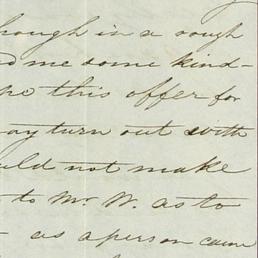 hough in a rough
d me some kind-
this offer for
ay turn out with
uld not make
to Mr. W. as to
- as a person came